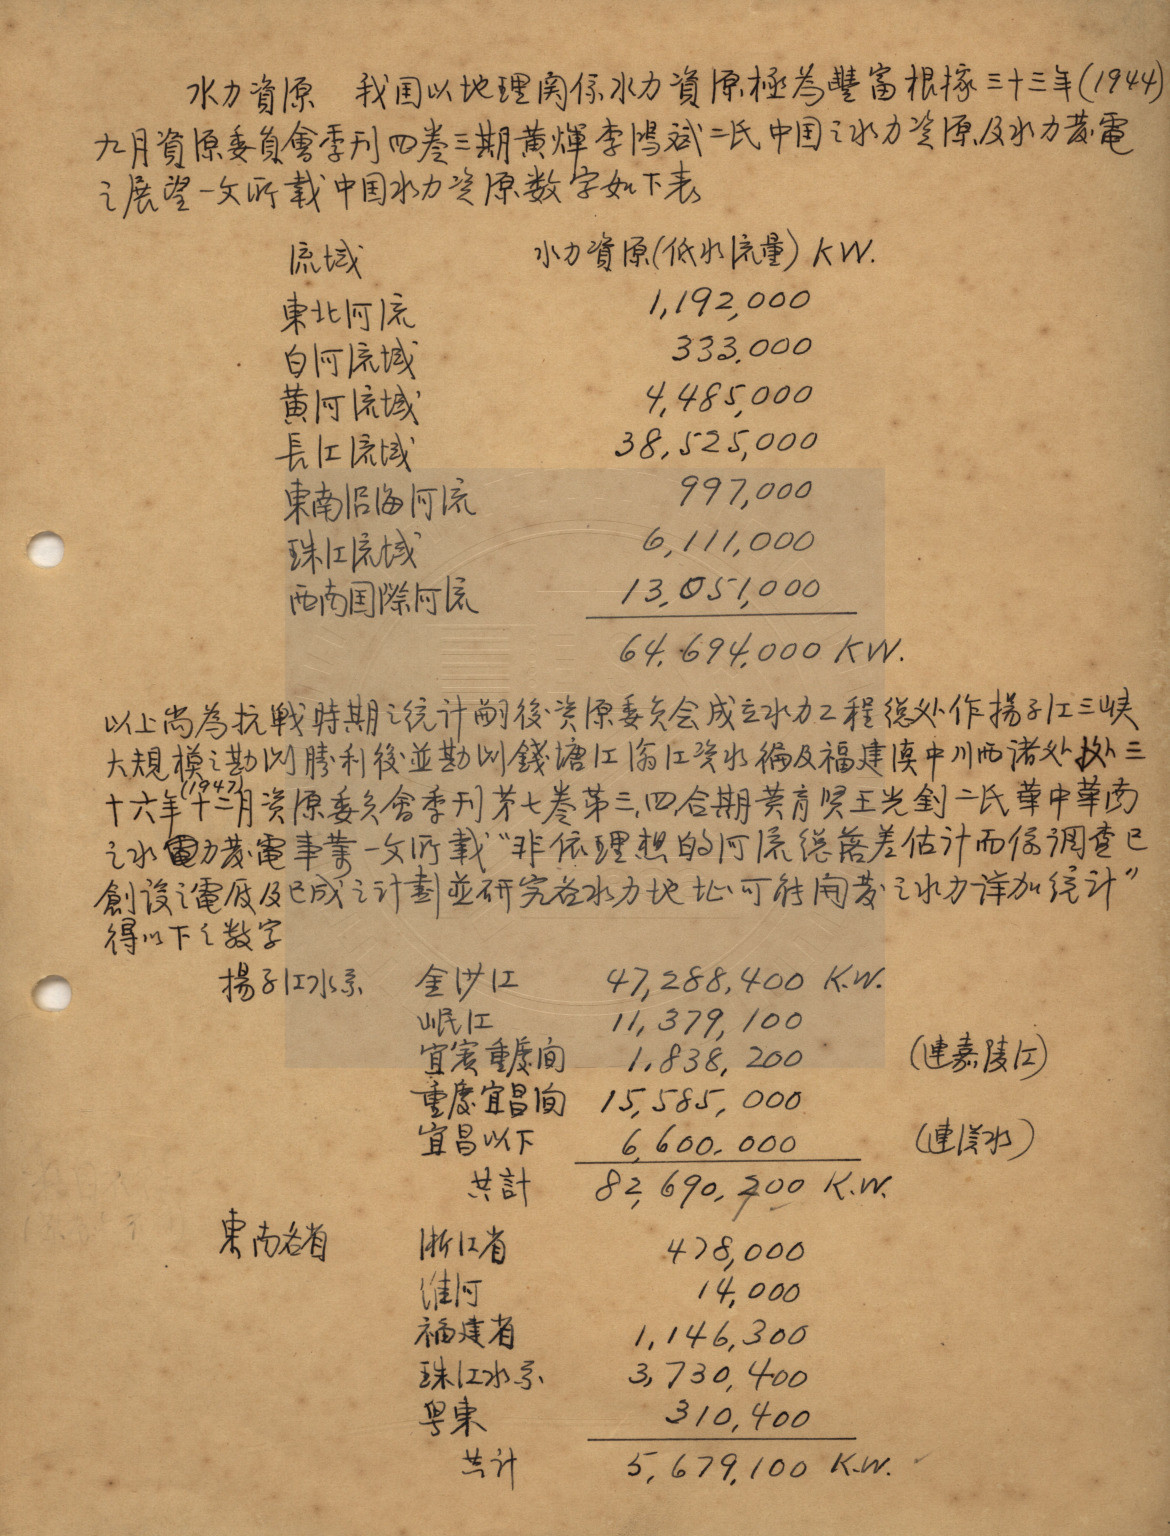 水力資源 我国以地理関係水力資源極為豐富根據三十三年(1944)
九月資源委員會季刊四卷三期黃煇李鴻斌二氏中国之水力资源及水力發電
之展望一文所載中国水力资源数字如下表
流域 水力資源(低水流量) KW.
東北河流 1,192,000
白河流域 333,000
黃河流域 4,485,000
長江流域 38,525,000
東南沿海河流 997,000
珠江流域 6,111,000
西南国際河流 13,051,000
64,694,000 KW.
以上尚為抗戰時期之统计嗣後资源委员会成立水力工程總处作揚子江三峽
大規模之勘测勝利後並勘测錢塘江翁江资水 及福建漢中川西诸处 三
十六年(1947)十二月资源委员會季刊第七卷第三,四合期黄育贤王光釗二氏華中華南
之水力發電事業一文所載"非依理想的河流總落差估计而係调查已
創设之電厰及已成之计劃並研究各水力地址可能開發之水力详加统计"
得以下之数字
揚子江水系 金沙江 47,288,400 K.W.
岷江 11,379,100
宜賓重慶间 1,838,200 (連嘉陵江)
重慶宜昌间 15,585,000
宜昌以下 6,600,000 (連漢水)
共計 82,690,700 K.W.
東南各省 浙江省 478,000
淮河 14,000
福建省 1,146,300
珠江水系 3,730,400
粤東 310,400
共计 5,679,100 K.W.